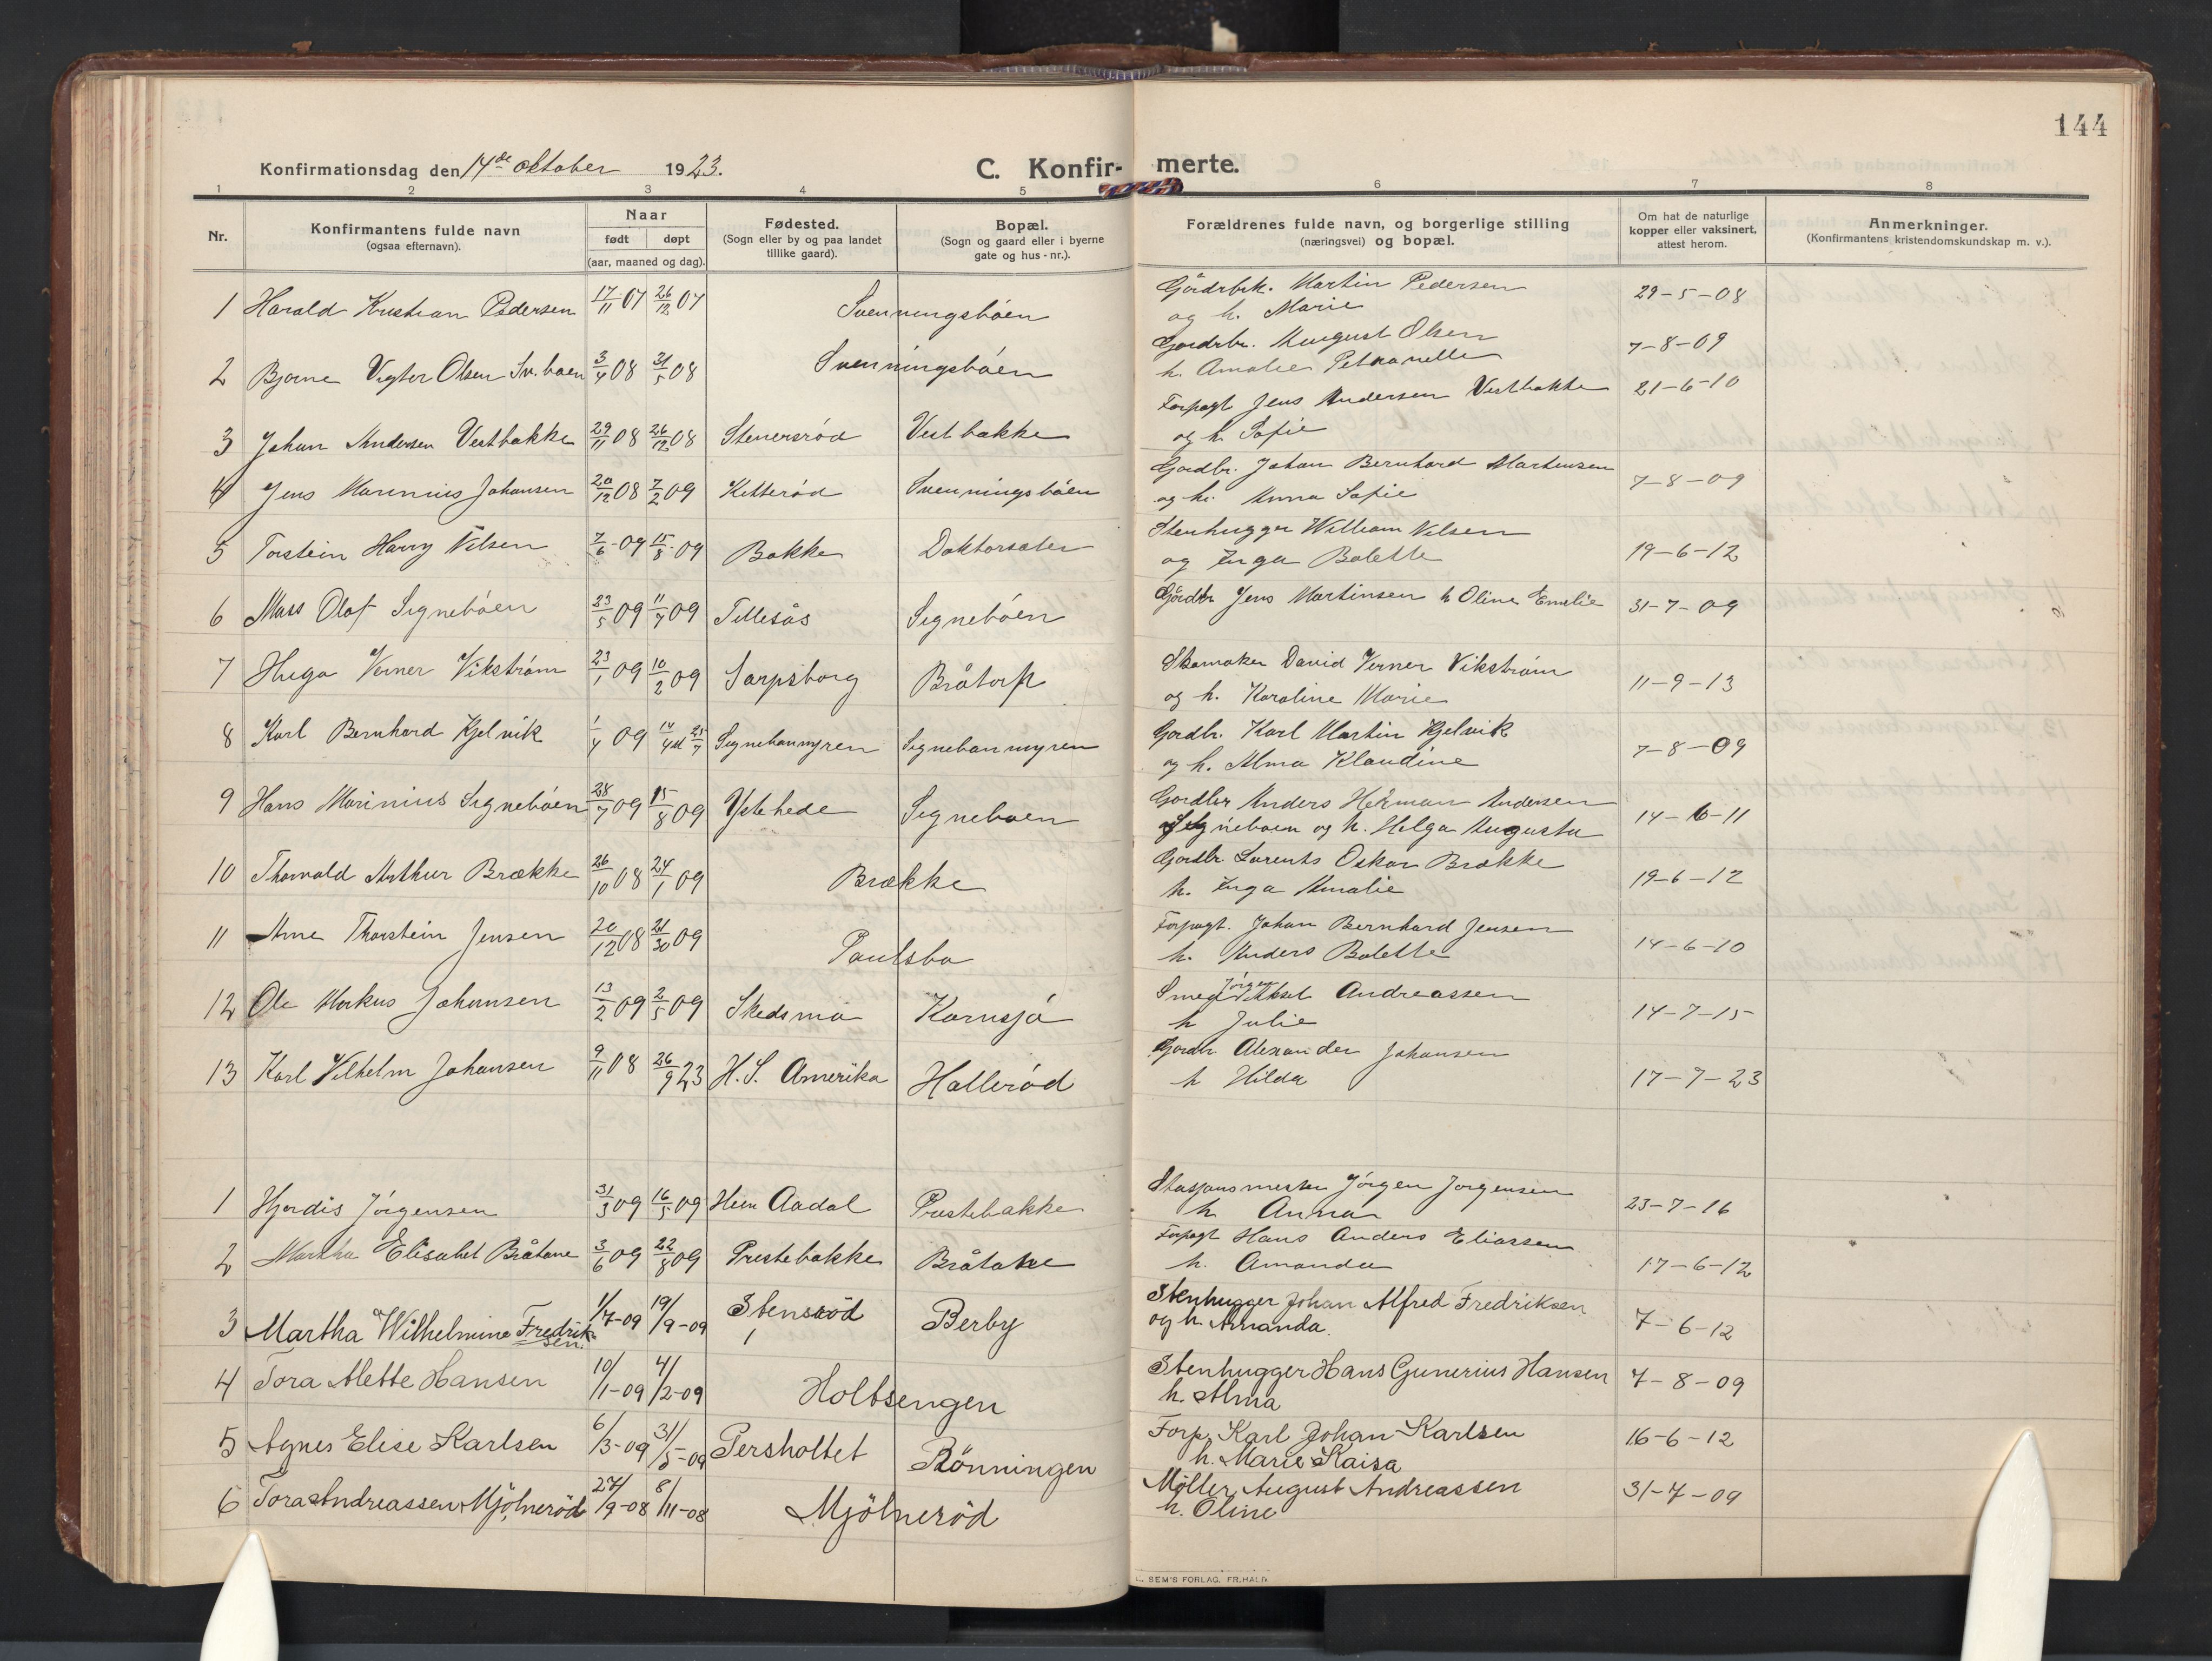 144
Konfirmationsdag den 14de oktober 1923. C. Konfir- merte.
1 2 3 4 5 6 7 8
Nr. Konfirmantens fulde navn (ogsaa efternavn). Naar født døpt (aar, maaned og dag). Fødested. (Sogn eller by og paa landet tillike gaard). Bopæl. (Sogn og gaard eller i byerne gate og hus-nr.). Forældrenes fulde navn, og borgerlige stilling (næringsvei) og bopæl. Om hat de naturlige kopper eller vaksinert, attest herom. Anmerkninger. (Konfirmantens kristendomskundskap m. v.).
1 Harald Kristian Pedersen 17/11 07 26/12 07 Svenningsböen Gårdbrk. Martin Pedersen 29-5-08
og h. Marie
2 Bjarne Vigtor Olsen Sv.boen 3/4 08 31/5 08 Svenningsböen Gårdbr. August Olsen 7-8-09
h. Amalie Petronelle
3 Johan Andersen Vestbakke 29/11 08 26/12 08 Stenersröd Vestbakke Forpagt Jens Andersen Vestbakke 21-6-10
og h. Sofie
4 Jens Marinius Johansen 20/12 08 7/2 09 Ketteröd Svenningsböen Gardbr. Johan Bernhard Martinsen 7-8-09
og h. Anna Sofie
5 Torstein Harry Nilsen 7/6-09 15/8-09 Bakke Doktorsæter Stenhugger William Nilsen 19-6-12
og Inga Bolette
6 Mass Olaf Signeböen 23/5 09 11/7 09 Tillesås Signeböen Gårdbr Jens Martinsen h Oline Emelie 31-7-09
7 Hugo Verner Vikström 23/1 09 10/2 09 Sarpsborg Bråtorp Skomaker David Verner Vikström 11-9-13
og h. Karoline Marie
8 Karl Bernhard Kjelvik 1/4 09 14/4 st 25/7 Signebønmyren Signebønmyren Gardbr. Karl Martin Kjelvik 7-8-09
og h. Alma Klaudine
9 Hans Marinius Signeböen 28/7 09 15/8 09 Ystehede Signeboen Gardbr Anders Herman Andersen 14-6-11
Signeboen og h. Helga Augusta
10 Thorvald Arthur Brække 26/10 08 24/1 09 Brække Gardbr Lorents Oskar Brække 19-6-12
h. Inga Amalie
11 Arne Thorstein Jensen 20/12 08 21/30 09 Paulsbo Forpagt. Johan Bernhard Jensen 14-6-10
h. Anders Bolette
12 Ole Markus Johansen 13/2 09 2/5 09 Skedsmo Kornsjö Smed Jörgen Aksel Andreassen 14-7-15
h Julie
13 Karl Vilhelm Johansen 9/11 08 26/9 23 H.S. Amerika Halleröd Gardbr Alexander Johansen 17-7-23
h Hilda
1 Hjordis Jörgensen 31/3 09 16/5 09 Hem Aadal Prestebakke Stasjonsmester Jörgen Jorgensen 23-7-16
h Anna
2 Martha Elisabet Båtane 3/6 09 22/8 09 Prestebakke Bråtane Forpagt Hans Anders Eliassen 17-6-12
h. Amanda
3 Martha Wilhelmine Fredriksen. 1/7-09 19/9-09 Stensröd Berby Stenhugger Johan Alfred Fredriksen 7-6-12
og h. Amanda.
4 Tora Alette Hansen 10/1-09 4/2-09 Holtsengen Stenhugger Hans Gunerius Hansen 7-8-09
h. Alma
5 Agnes Elise Karlsen 6/3-09 31/5-09 Persholtet Rönningen Forp. Karl Johan Karlsen 16-6-12
h. Marie Kaisa
6 Tora Andreassen Mjölneröd 27/9-08 8/11-08 Mjölneröd Møller August Andreassen 31-7-09
h. Oline
SEM'S FORLAG, FR.HALD